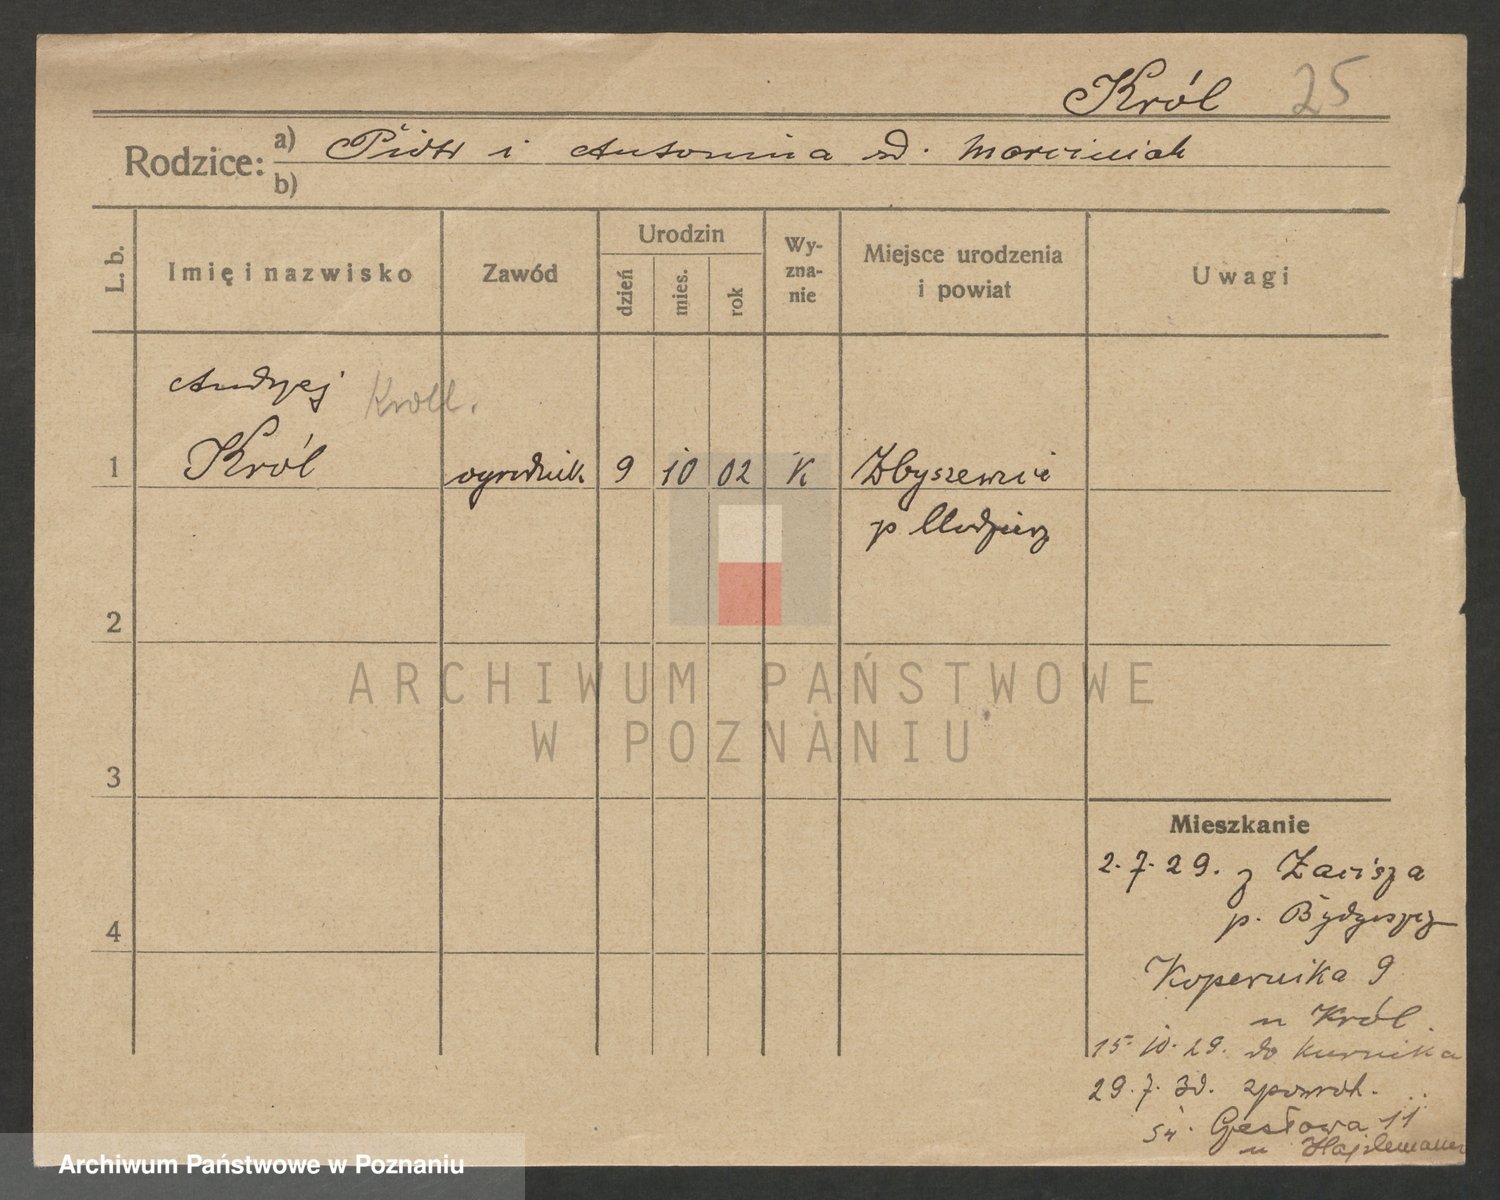 Król 25
Rodzice: a) Piotr i Antonina rd. Marciniak
b)
L. b.
Imię i nazwisko
Zawód
Urodzin
dzień
mies.
rok
Wy-
zna-
nie
Miejsce urodzenia
i powiat
Uwagi
Andrzej Kroll.
1 Król ogrodnik 9 10 02 K Zbyszewice
p
2
ARCHIWUM PAŃSTWOWE
W POZNANIU
3
Mieszkanie
2.7.29. z Zacisza
4 p. Bydgoszcz
Kopernika 9
u Król.
15.10.29. do Kurnika
29.7.30. zpowrot.
11
u
Archiwum Państwowe w Poznaniu